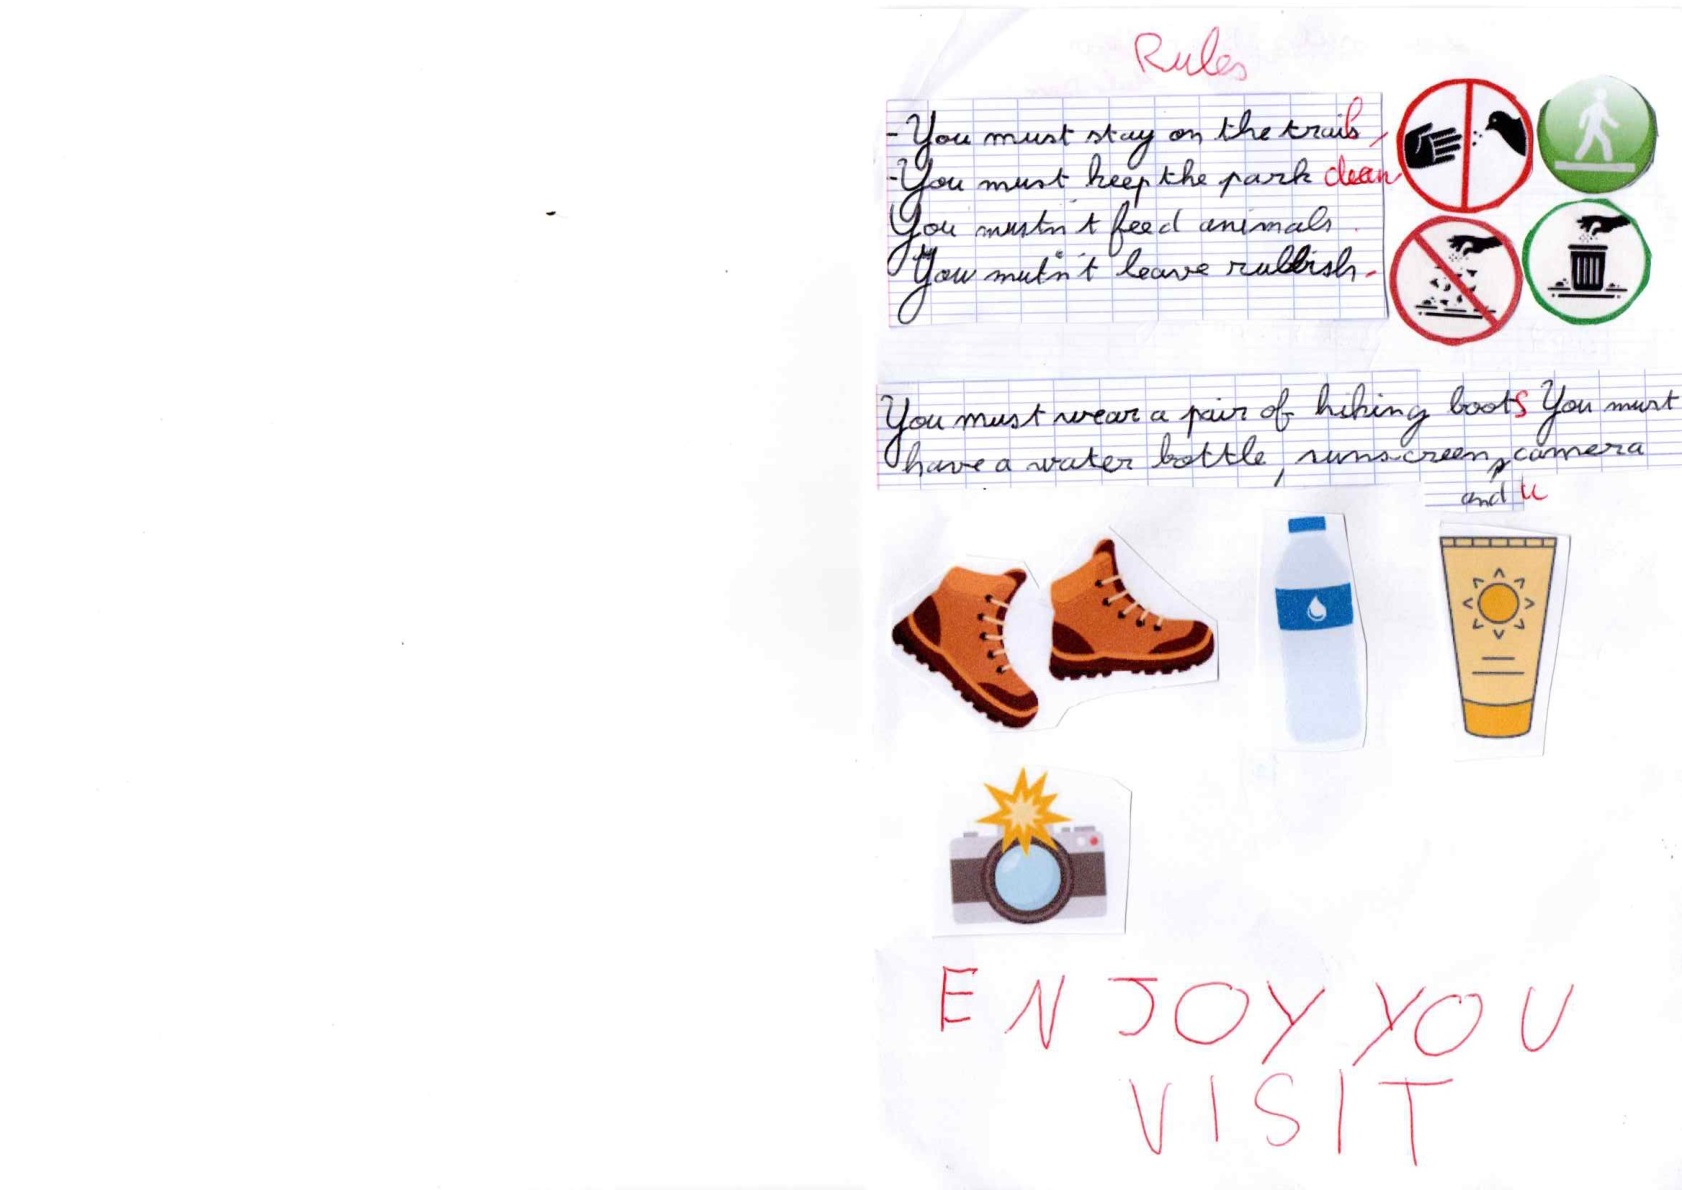 Rules
- You must stay on the trails
- You must keep the park clean
You mustn't feed animals.
You mutn't leave rubbish.
You must wear a pair of hiking boots You must
have a water bottle, sunscreen, camera
and
ENJOY YOU
VISIT